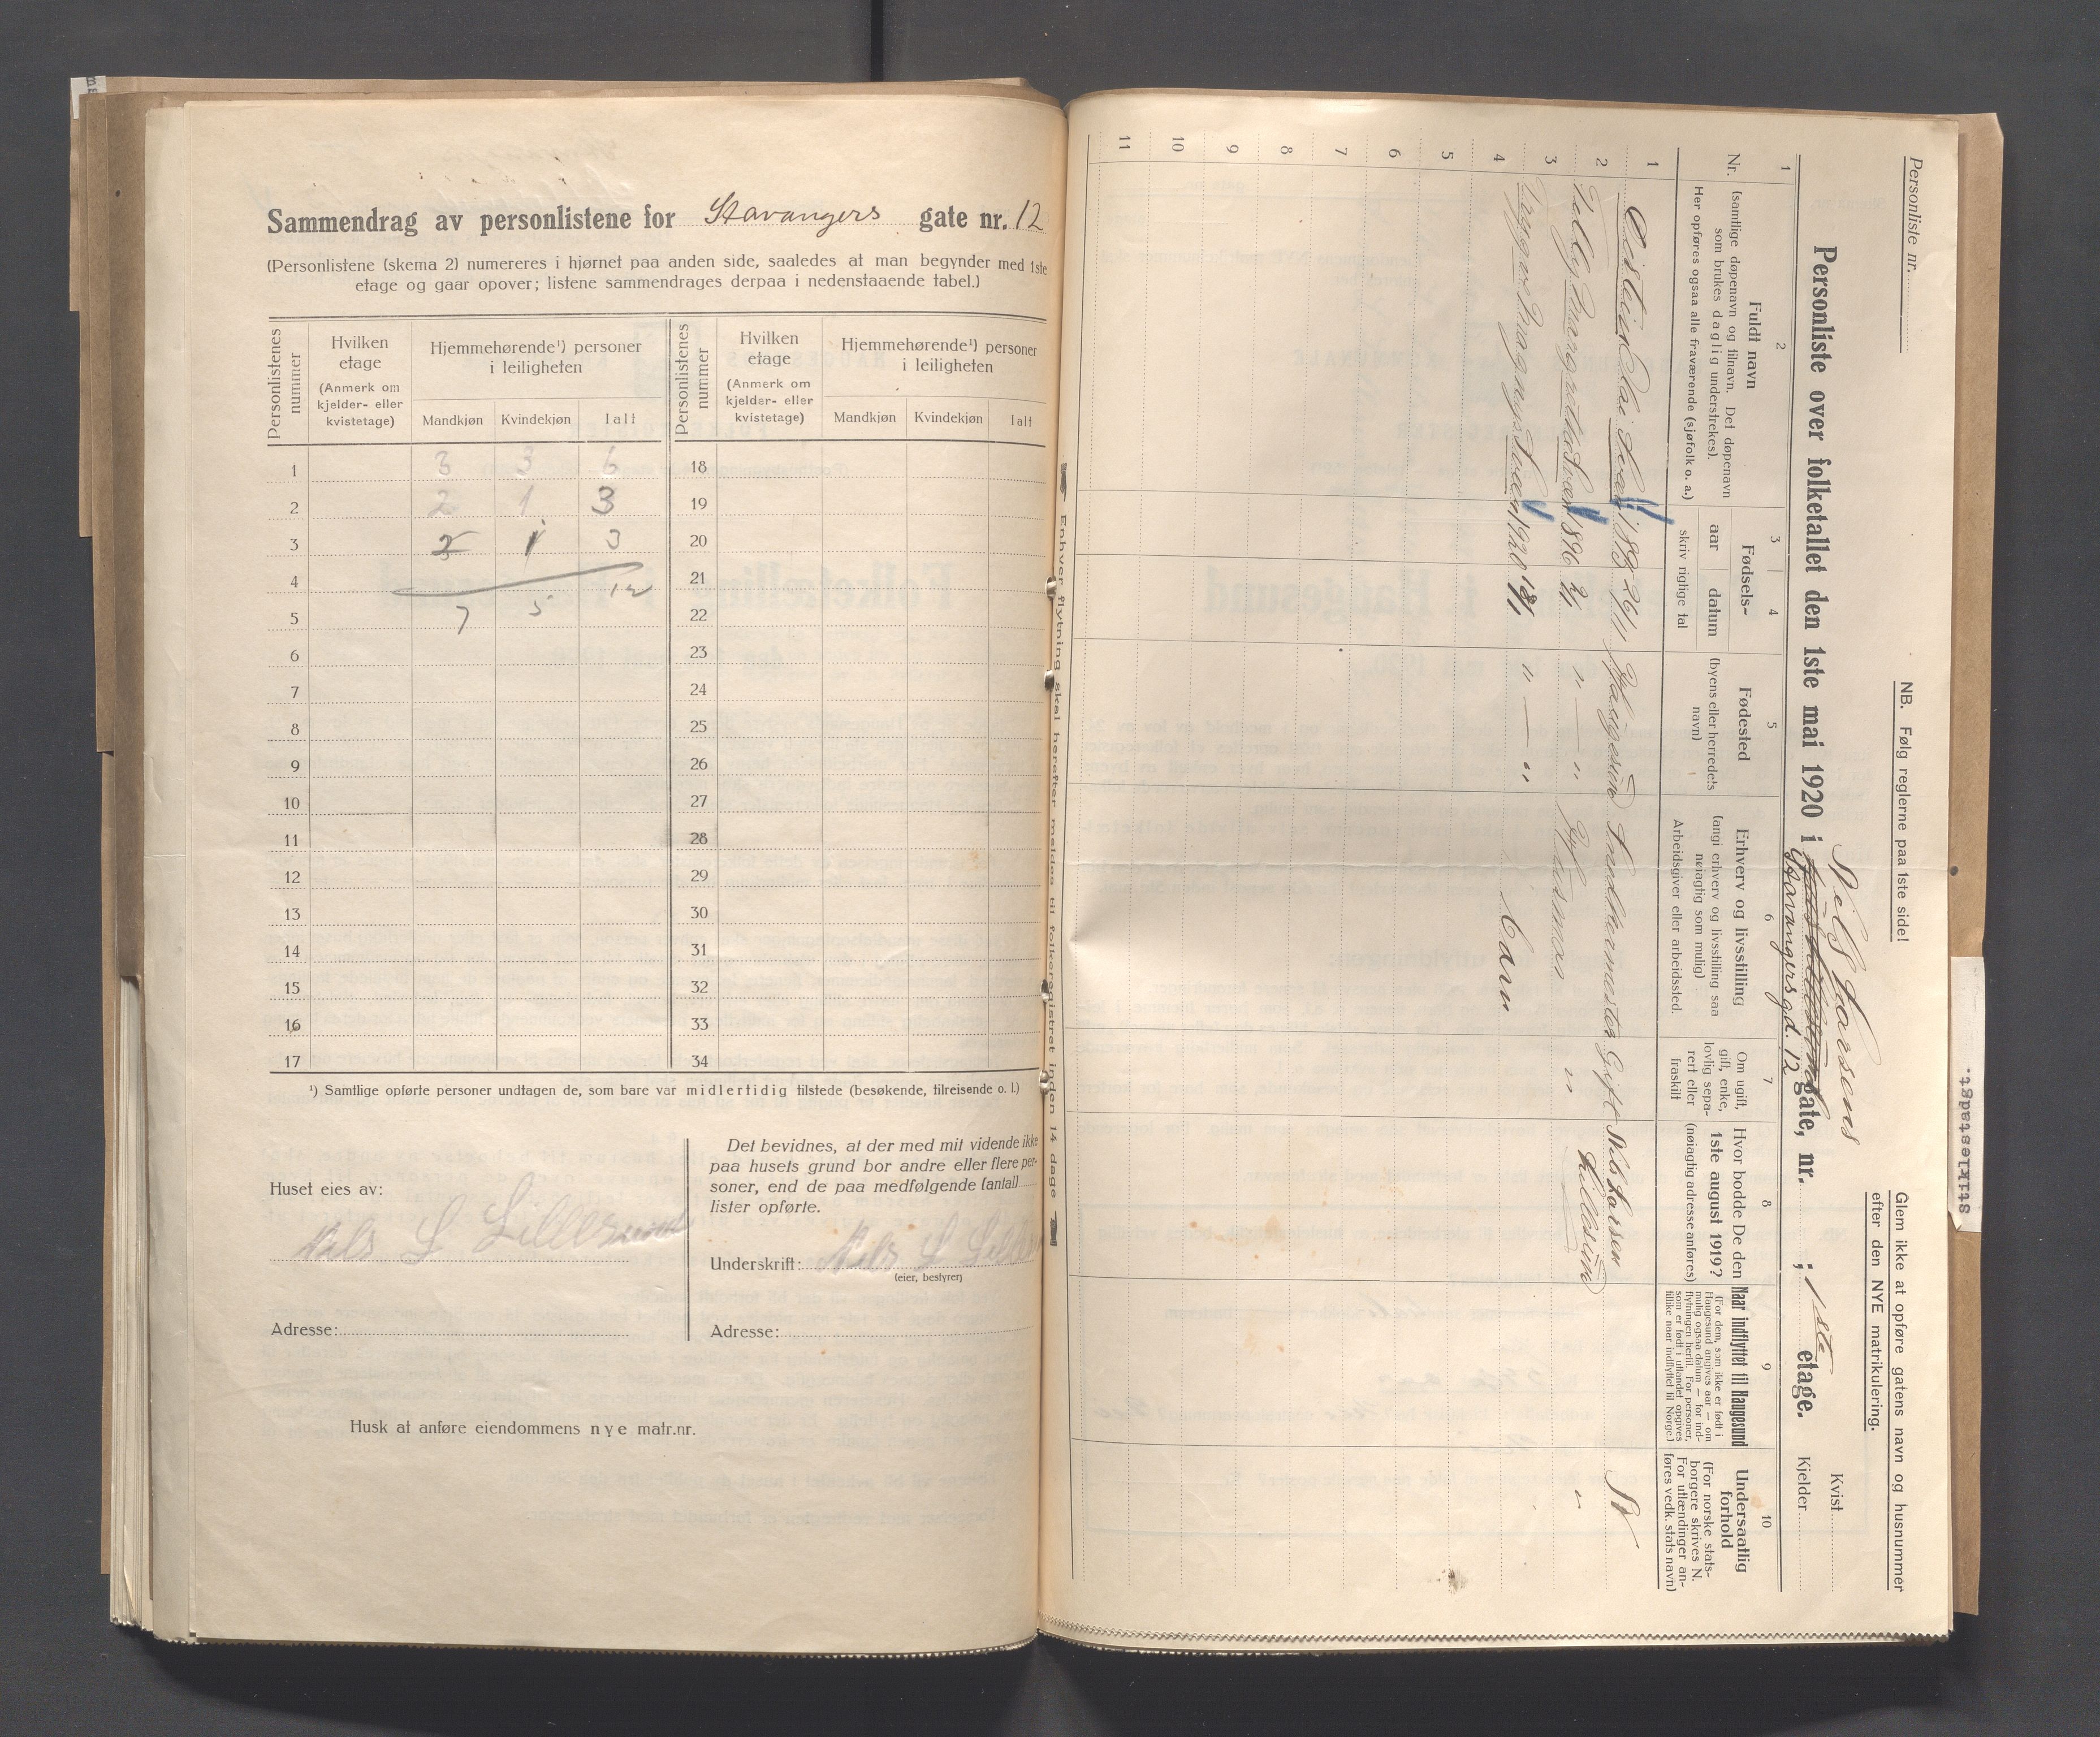 Sammendrag av personlistene for Stavangers gate nr. 12
(Personlistene (skema 2) numereres i hjørnet paa anden side, saaledes at man begynder med 1ste
etage og gaar opover; listene sammendrages derpaa i nedenstaaende tabel.)
Personlistenes nummer
Hvilken etage
(Anmerk om kjelder- eller kvistetage)
Hjemmehørende¹) personer i leiligheten
Mandkjøn Kvindekjøn Ialt
Personlistenes nummer
Hvilken etage
(Anmerk om kjelder- eller kvistetage)
Hjemmehørende¹) personer i leiligheten
Mandkjøn Kvindekjøn Ialt
1 3 3 6 18
2 2 1 3 19
3 2 1 3 20
4 12 21
5 7 5 22
6 23
7 24
8 25
9 26
10 27
11 28
12 29
13 30
14 31
15 32
16 33
17 34
¹) Samtlige opførte personer undtagen de, som bare var midlertidig tilstede (besøkende, tilreisende o. l.)
Huset eies av:
Nels L Lillesund
Adresse:
Det bevidnes, at der med mit vidende ikke
paa husets grund bor andre eller flere per-
soner, end de paa medfølgende (antall
lister opførte.
Underskrift: Nels L
(eier, bestyrer)
Adresse:
Husk at anføre eiendommens nye matr.nr.
Enhver flytning skal herefter meldes til folkeregistret inden 14 dage
Personliste nr.
NB. Følg reglerne paa 1ste side!
Glem ikke at opføre gatens navn og husnummer
efter den NYE matrikulering.
Nils Larsens
Personliste over folketallet den 1ste mai 1920 i gate, nr. ; 1ste etage.
Stavangersgd. 12
Kvist
Kjelder
1 2 3 4 5 6 7 8 9 10
Nr.
Fuldt navn
(samtlige døpenavn og tilnavn. Det døpenavn
som brukes daglig understrekes).
Her opføres ogsaa alle fraværende (sjøfolk o. a.)
Fødsels-
aar datum
skriv rigtige tal
Fødested
(byens eller herredets
navn)
Erhverv og livsstilling
(angi erhverv og livsstilling saa
nøiagtig som mulig)
Arbeidsgiver eller arbeidssted.
Om ugift,
gift, enke,
lovlig sepa-
rert eller
fraskilt
Hvor bodde De den
1ste august 1919?
(nøiagtig adresse anføres)
Naar indflyttet til Haugesund
(For dem, som ikke er født i
Haugesund angives aar — om
mulig ogsaa datum — for ind-
flytningen hertil. For personer,
som er født i utlandet opgives
tillike naar indflyttet til Norge.)
Undersaatlig
forhold
(For norske stats-
borgere skrives N.
For utlændinger an-
føres vedk. stats navn)
1 1893 26/11 Haugesund Gift Nils Larsen N
Lillesund
2 Margrethe 1896 " — " Husmor " — "
3 Magnus 1920 18/1 " — " barn
4
5
6
7
8
9
10
11
Stiklestadgt.